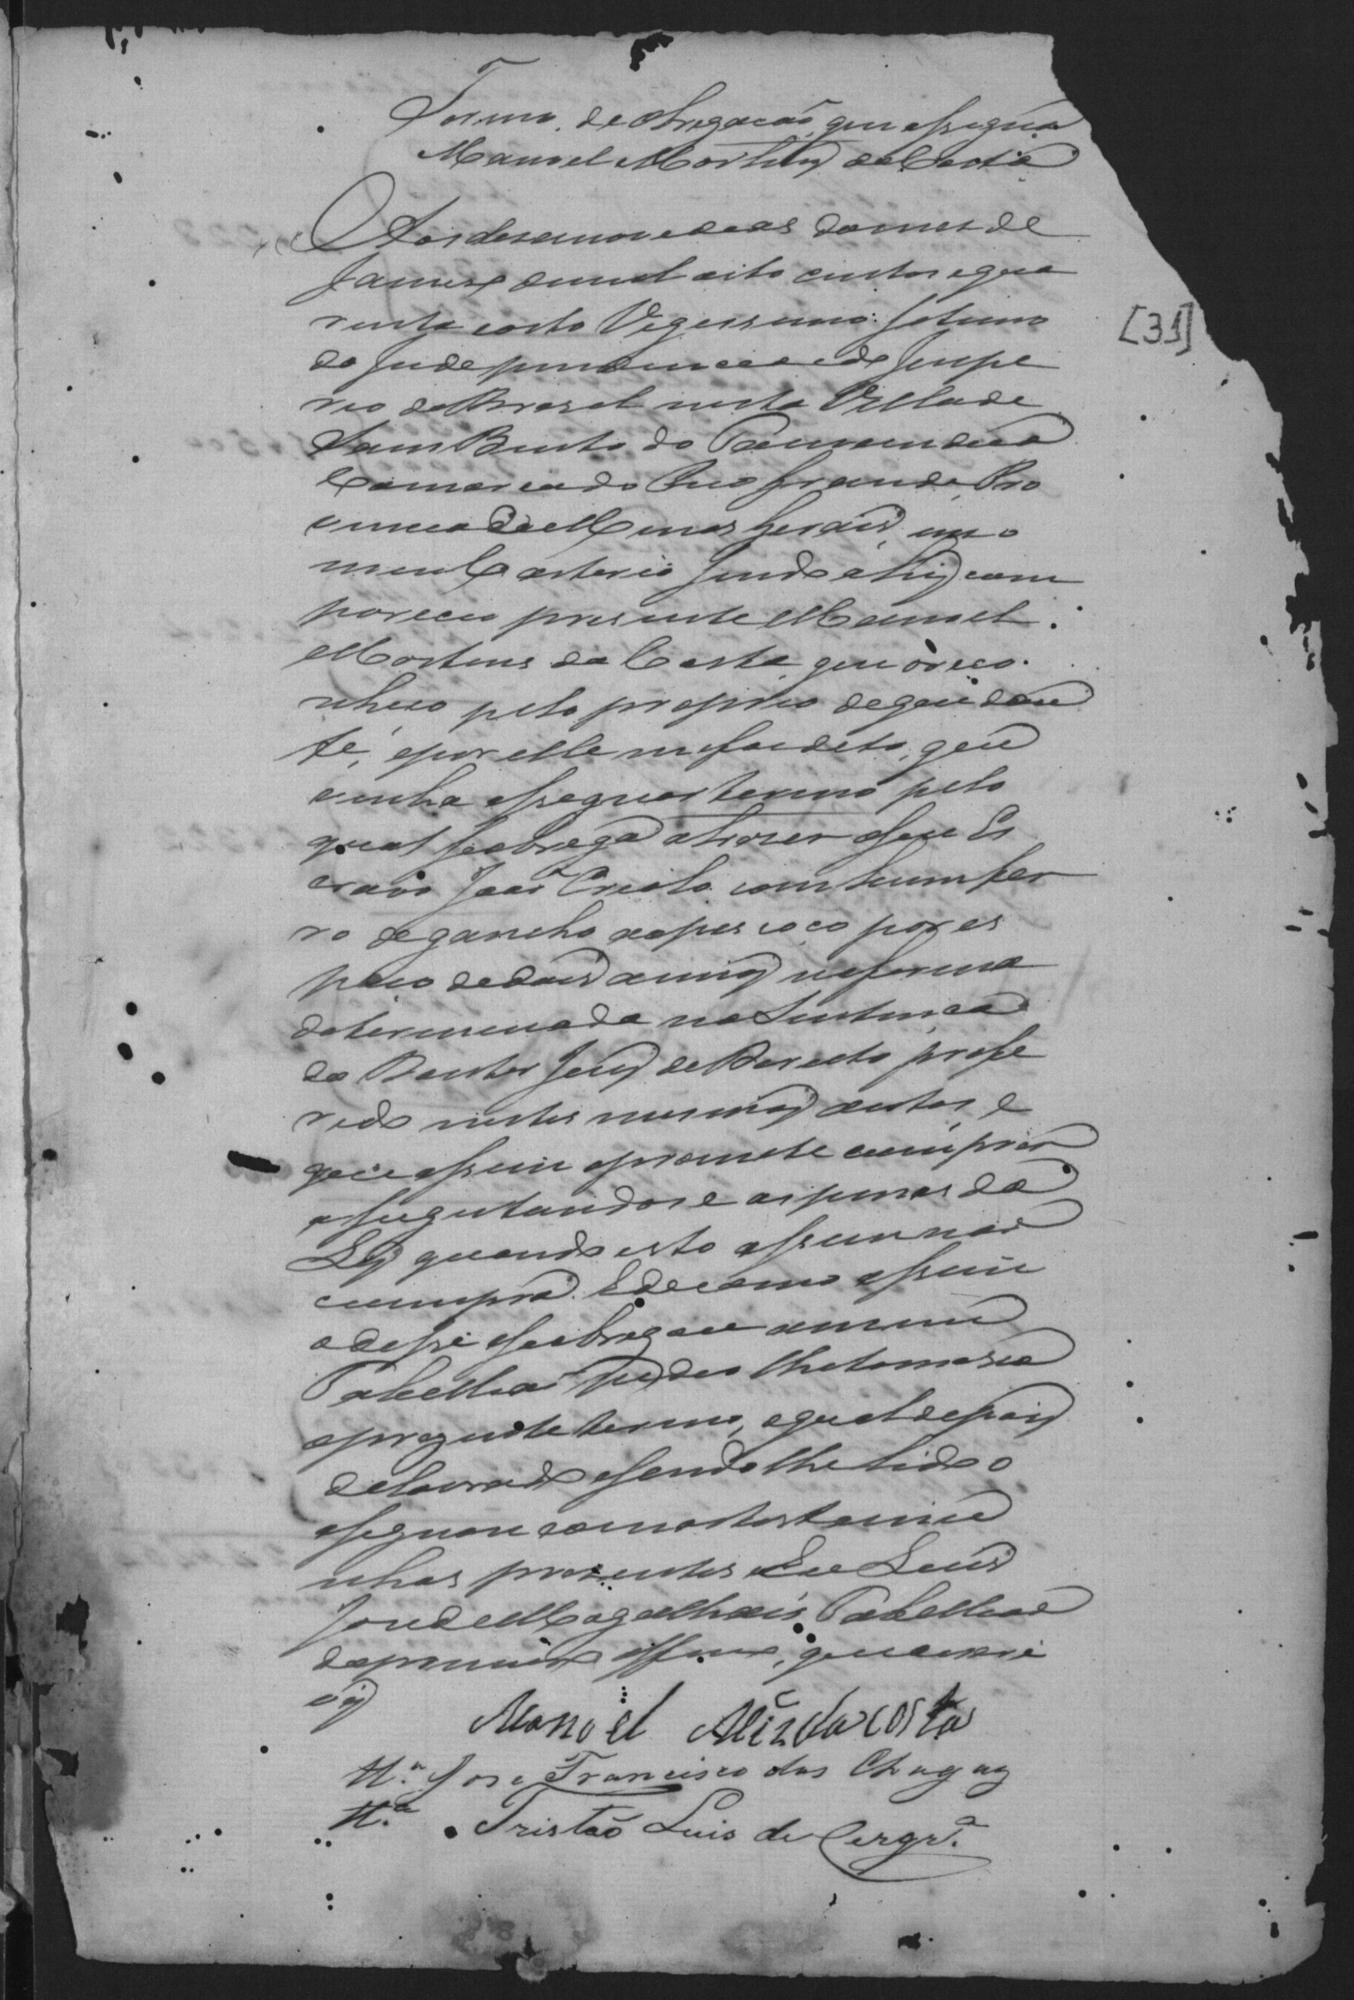 Termo de obrigacaõ que assigna
Manoel Martins da Costa
Aos desanove dias do mes de
Janeiro de mil oito centos e qua
renta e oito Vigessimo Setimo
da Independencia e do Impe
rio do Brasil nesta Villa de
Sam Bento do Tamandua
Comarca do Rio Grande Pro
vincia de Minas Gerais, em o
meu Cartorio sendo ahi com
pareceo presente Manoel
Martins da Costa, que o reco
nheco pelo proprio de que dou
fé, e por elle me foi dito, que
vinha assignar termo pelo
qual se obriga a traser o seu Es
cravo Joaõ Criolo com hum fer
ro de gancho ao pescoco por es
paco de dois annos na forma
determinada na Sentenca
do Doutor Juiz de Direito profe
rida nestes mesmos autos, e
que assim o promete cumprir
e sugeitandose as penas da
Ley quando isto assim naõ
cumpra. E de como assim
o disse e se obrigou a mim
Tabelliaõ pedio lhe tomasse
o prezente termo, o qual depois
de lavrado e sendo lhe lido o
assignou com as testemu
nhas presentes. Eu Luis
Jose de Magalhais Tabelliaõ
do primeiro officio, que escre
vy
Manoel Miz da costa
Tt.ª Jose Francisco das Chagas
Tt.ª Tristaõ Luis de Cerqr.ª
[31]